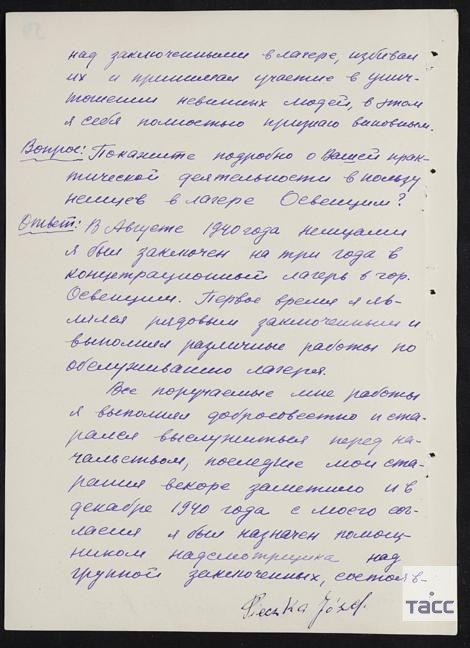 над заключенными в лагере, избивал
их и принимал участие в унич-
тожении невинных людей, в этом
я себя полностью признаю виновным.
Вопрос: Покажите подробно о Вашей прак-
тической деятельности в пользу
немцев в лагере Освенцим?
Ответ: В Августе 1940 года немцами
я был заключен на три года в
концентрационный лагерь в гор.
Освенцим. Первое время я яв-
лялся рядовым заключенным и
выполнял различные работы по
обслуживанию лагеря.
Все поручаемые мне работы
я выполнял добросовестно и ста-
рался выслужиться перед на-
чальством, последние мои ста-
рания вскоре заметило и в
декабре 1940 года с моего сог-
ласия я был назначен помощ-
ником надсмотрщика над
группой заключенных, состояв-
Józef
ТАСС